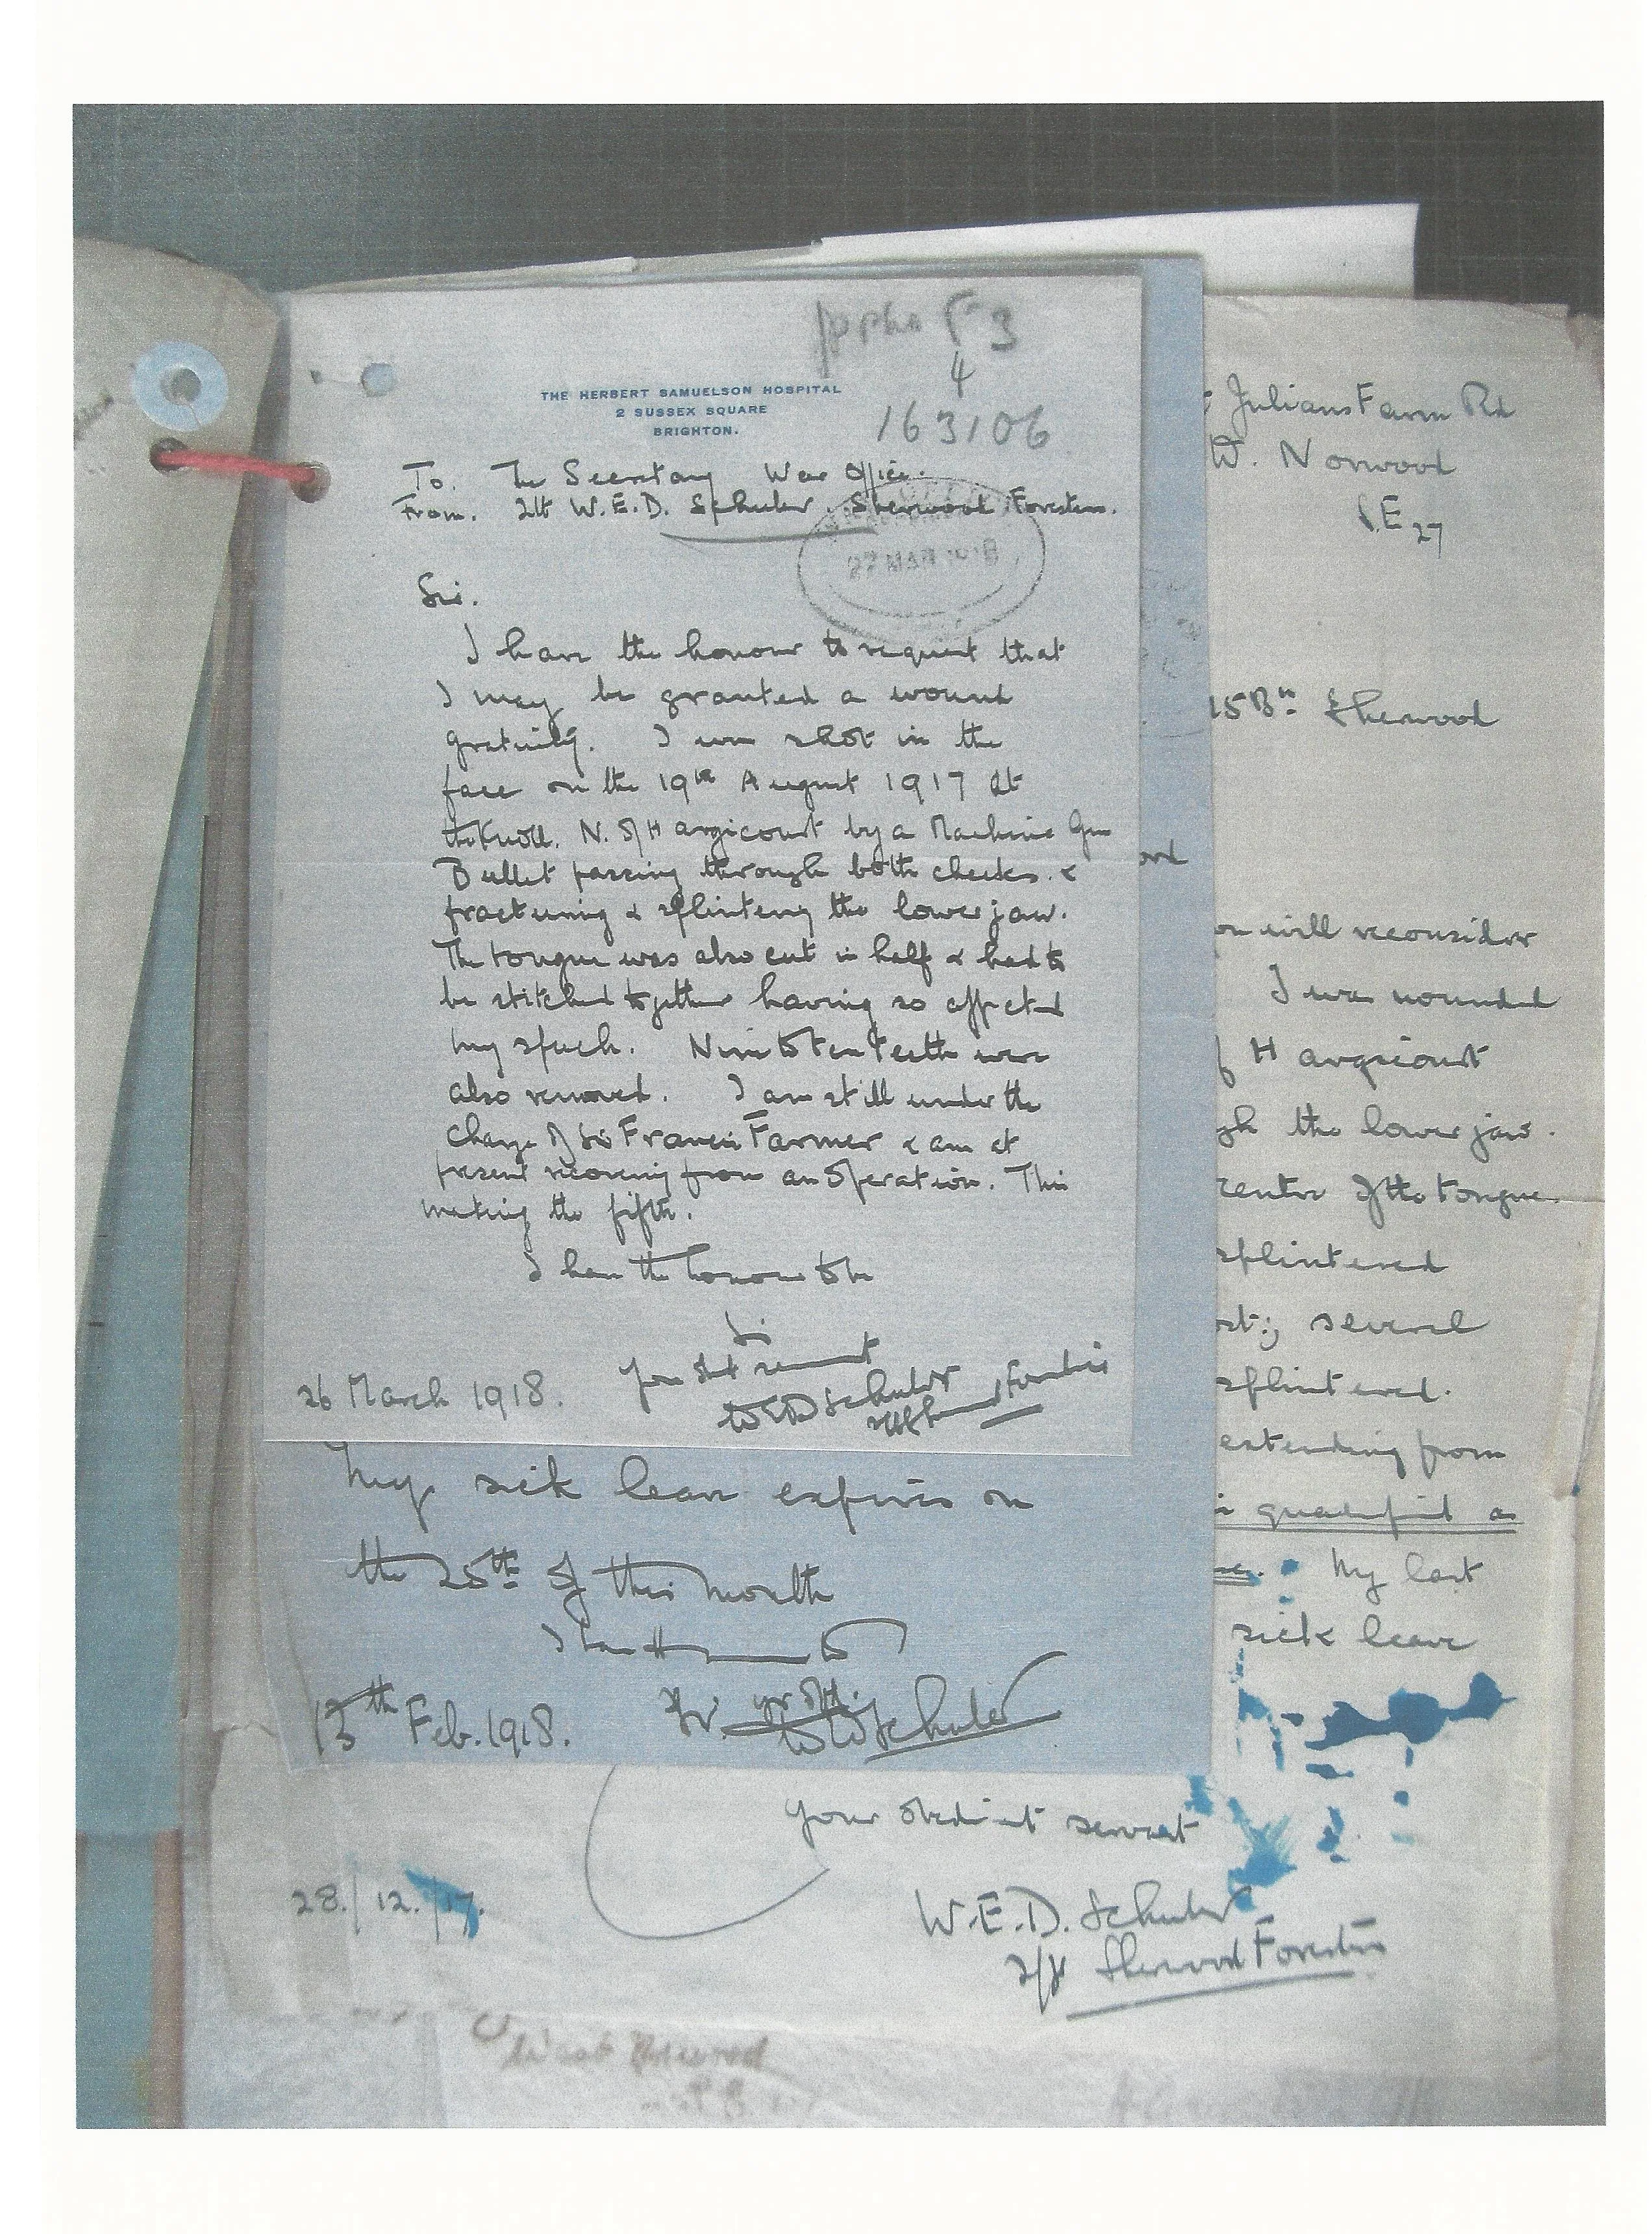 F 3
4
THE HERBERT SAMUELSON HOSPITAL
2 SUSSEX SQUARE
BRIGHTON.
163106
To. The Secretary War Office.
From. 2Lt W.E.D. Schuler, Sherwood Foresters.
27 MAR 1918
Sir.
I have the honour to request that
I may be granted a wound
gratuity. I was shot in the
face on the 19th August 1917 at
the Knoll. N. of Hargicourt by a Machine Gun
Bullet passing through both cheeks. &
fracturing & splintering the lower jaw.
The tongue was also cut in half & had to
be stitched together having so affected
my speech. Nine to ten teeth were
also removed. I am still under the
charge of Sir Francis Farmer & am at
present recovering from an operation. This
making the fifth.
I have the honour to be
Sir
Your obt servant
WED Schuler
Sherwood Foresters
26 March 1918.
My sick leave expires on
the 25th of this month
I have the to
Sir. yr obt.
WEDSchuler
13th Feb. 1918.
Julians Farm Rd
W. Norwood
S.E 27
15 Bn: Sherwood
ou will reconsider
I was wounded
f Hargicourt
gh the lower jaw.
centre of the tongue.
splintered
ost; several
splintered.
extending from
qualified as
My last
sick leave
Your obedient servant
28./12./17.
W.E.D. Schuler
2/Lt Sherwood Foresters
West Norwood